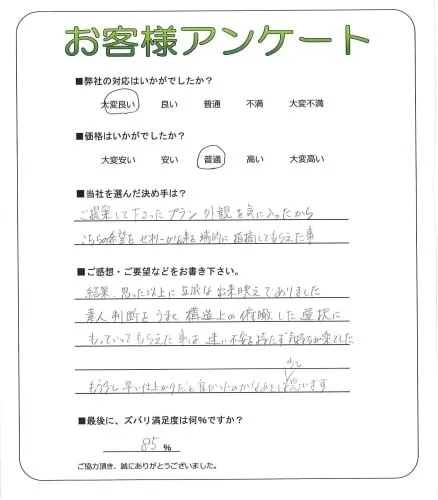 お客様アンケート
■弊社の対応はいかがでしたか？
大変良い 良い 普通 不満 大変不満
■価格はいかがでしたか？
大変安い 安い 普通 高い 大変高い
■当社を選んだ決め手は？
ご提案して下さったプラン 外観を気に入ったから
こちらの希望を 出来を端的に指摘してもらえた事
■ご感想・ご要望などをお書き下さい。
結果、思った以上に立派な出来映えでありました
素人判断をうまく構造上の俯瞰した選択に
もっていってもらえた事は迷い不安を持たず気持ちが楽でした
少し
もう少し早い仕上がりだと良かったのかな とは思います
■最後に、ズバリ満足度は何%ですか？
85 %
ご協力頂き、誠にありがとうございました。